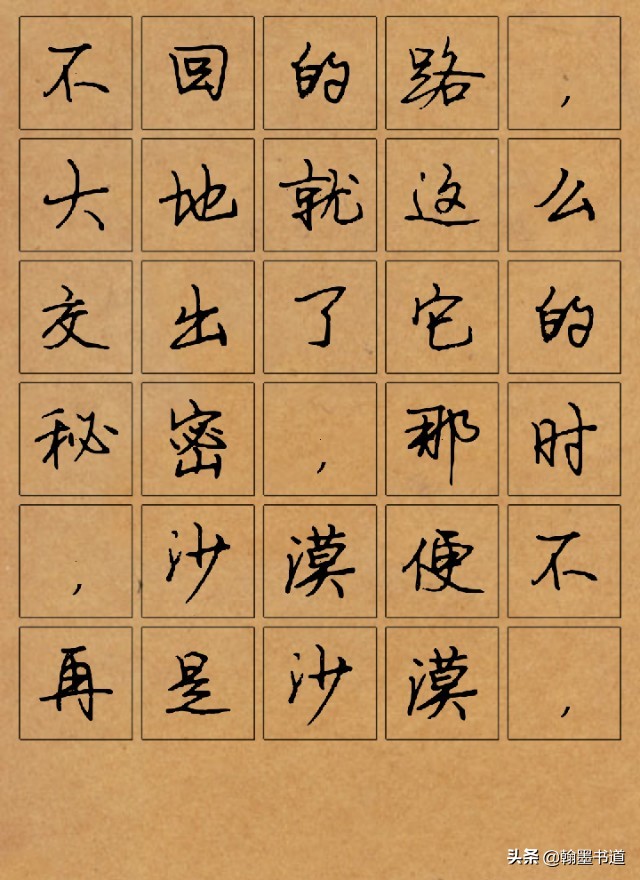 不回的路，
大地就这么
交出了它的
秘密，那时
，沙漠便不
再是沙漠，
头条 @翰墨书道